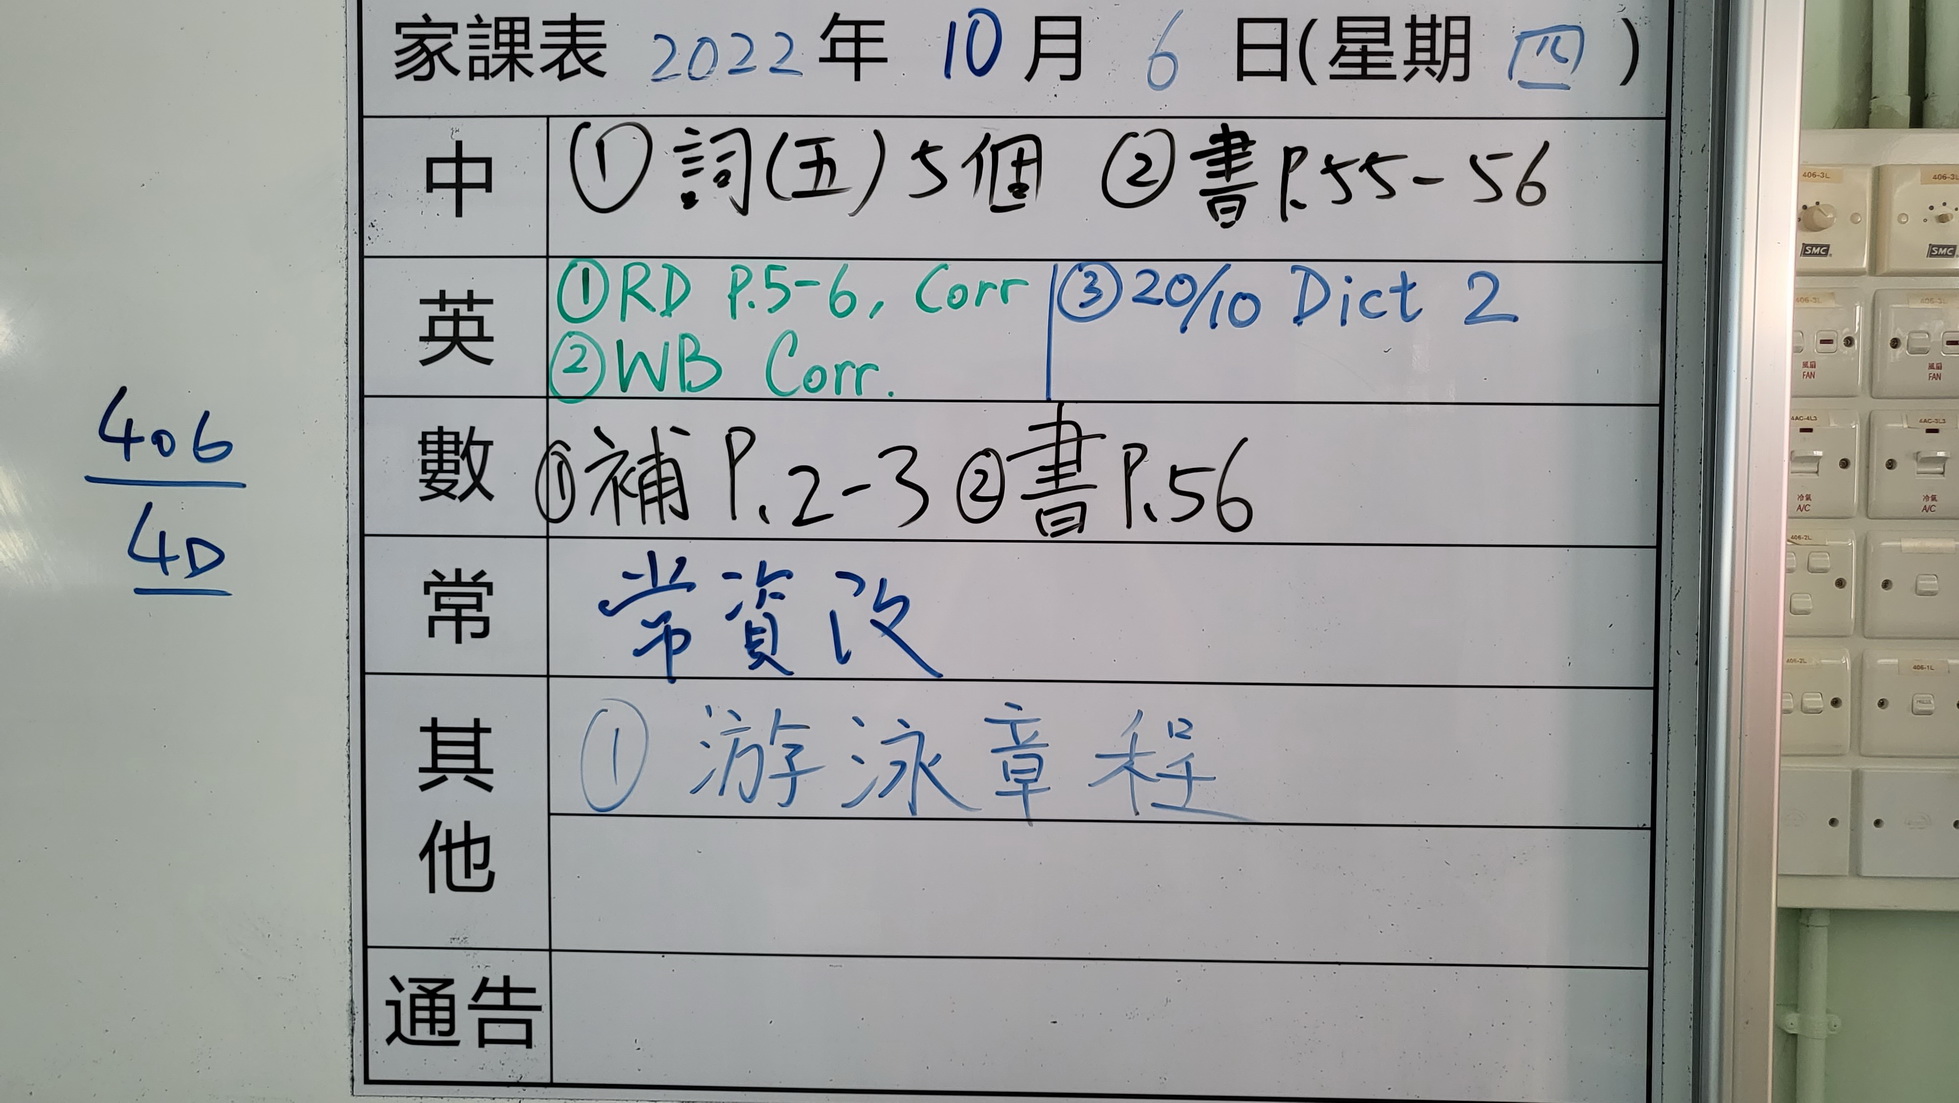 家課表 2022年 10月 6日(星期四)
中 ①詞(五)5個 ②書P.55-56
英 ①RD P.5-6, Corr ③20/10 Dict 2
②WB Corr.
數 ①補P.2-3 ②書P.56
常 常資改
其他 ①游泳章程
通告
406
4D
406-3L
SMC
SMC
風扇
FAN
風扇
FAN
4AC-4L3
4AC-3L3
冷氣
A/C
冷氣
A/C
406-2L
406-1L